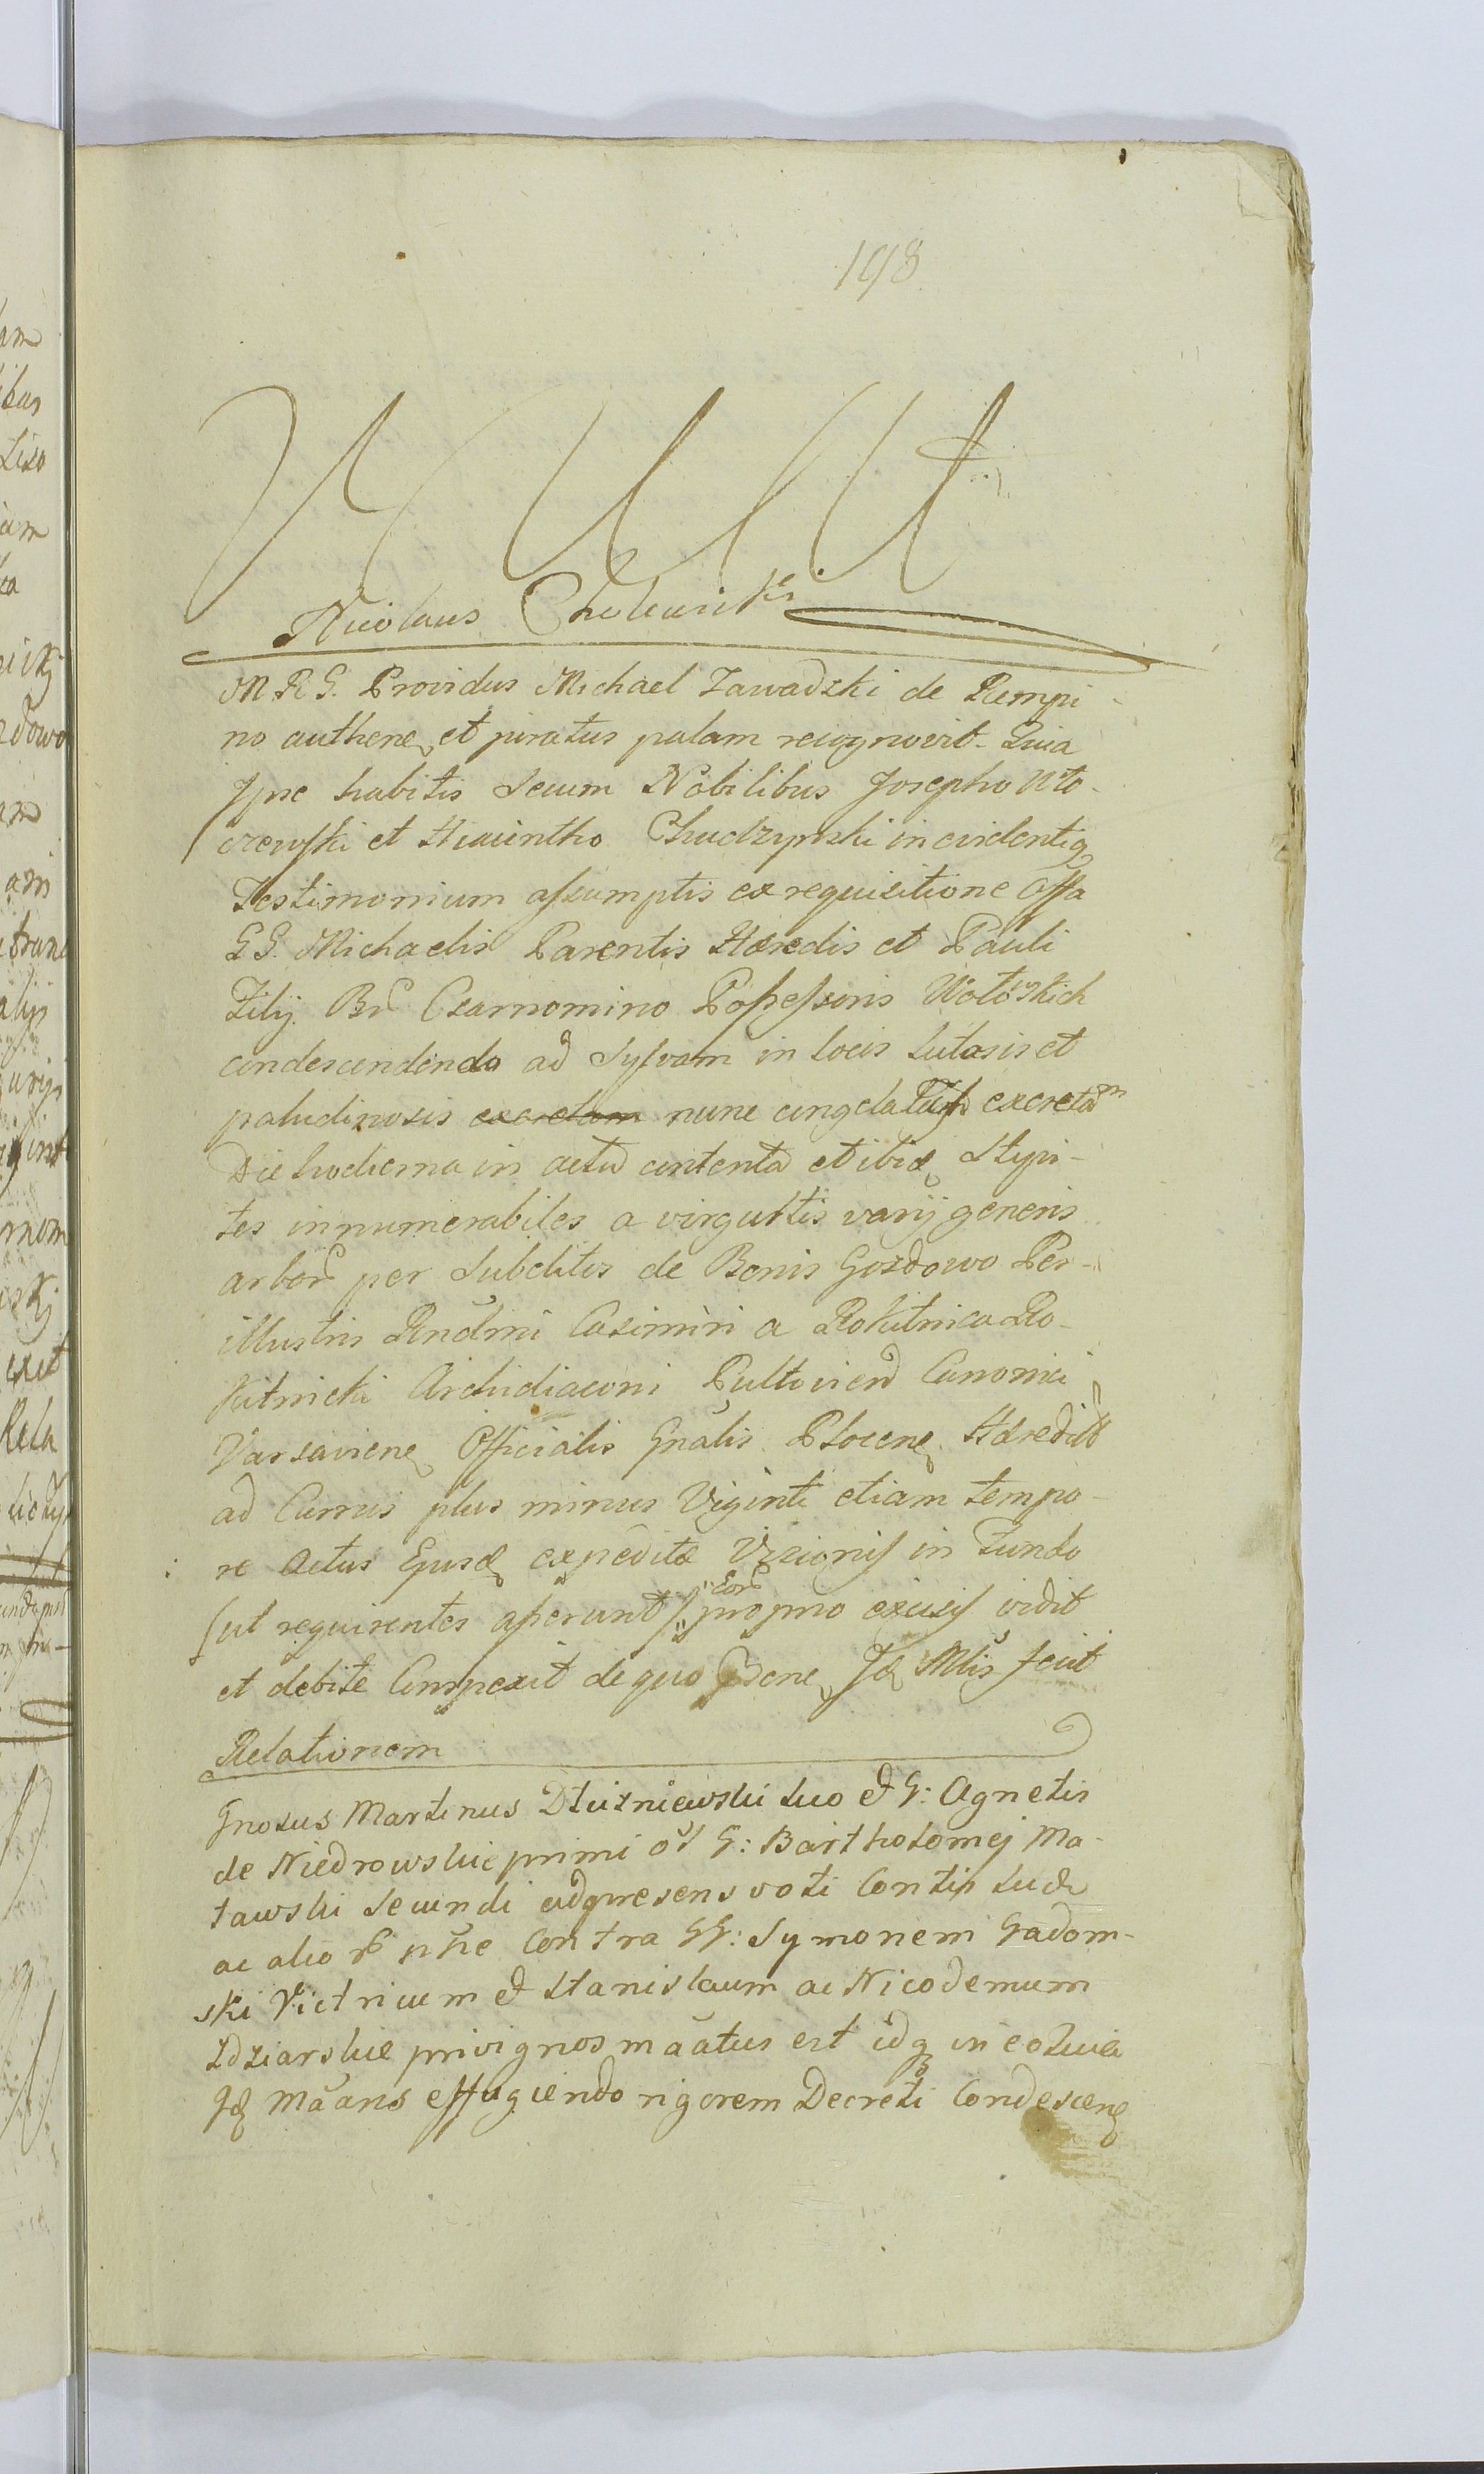 198
Nicolaus
M. R. G. Providus Michael Zawadzki de Rempi-
no authene et juratus palam recognovit. Quia
Ipse habitis secum Nobilibus Josepho Wto-
czewski et Hiacintho Chudzynski in evidentiq
Testimonium assumptis ex requisitione Offa
GG. Michaelis Parentis Hæredis et Pauli
Filij Br Czarnomino Possessoris
condescendendo ad Sylvam in locis lutosis et
paludinosis excretam nunc excretam
Die hodierna in actu contenta et ibid Stypi-
tes innumerabiles a virgultis varij generis
arbor per Subditos de Bonis Gozdowo Per-
illustris Rndmi Casimiri a Rokitnica Ro-
kitnicki Archidiaconi Pultovien Canonici
Varsaviene Officialis Gnalis Plocene Hæredit
ad Currus plus minus Viginti etiam tempo-
re Actus Ejusd expeditæ Visionis in Fundo
(ut requirentes asserunt) Eor proprio excisis vidit
et debite Conspexit de quo Id Mlis fecit
Relationem
Gnosus Martinus Dłuzniewski suo et G: Agnetis
de Niedrowskie primi G: Bartholomej Ma-
tawski secundi adpresens voti Contis
ac alio nne Contra GG: Symonem Gadom-
ski Victricum et Stanislaum ac Nicodemum
Zdziarskie privignos maatus est idq in eo Quia
Id maans effugiendo rigorem Decreti Condescene